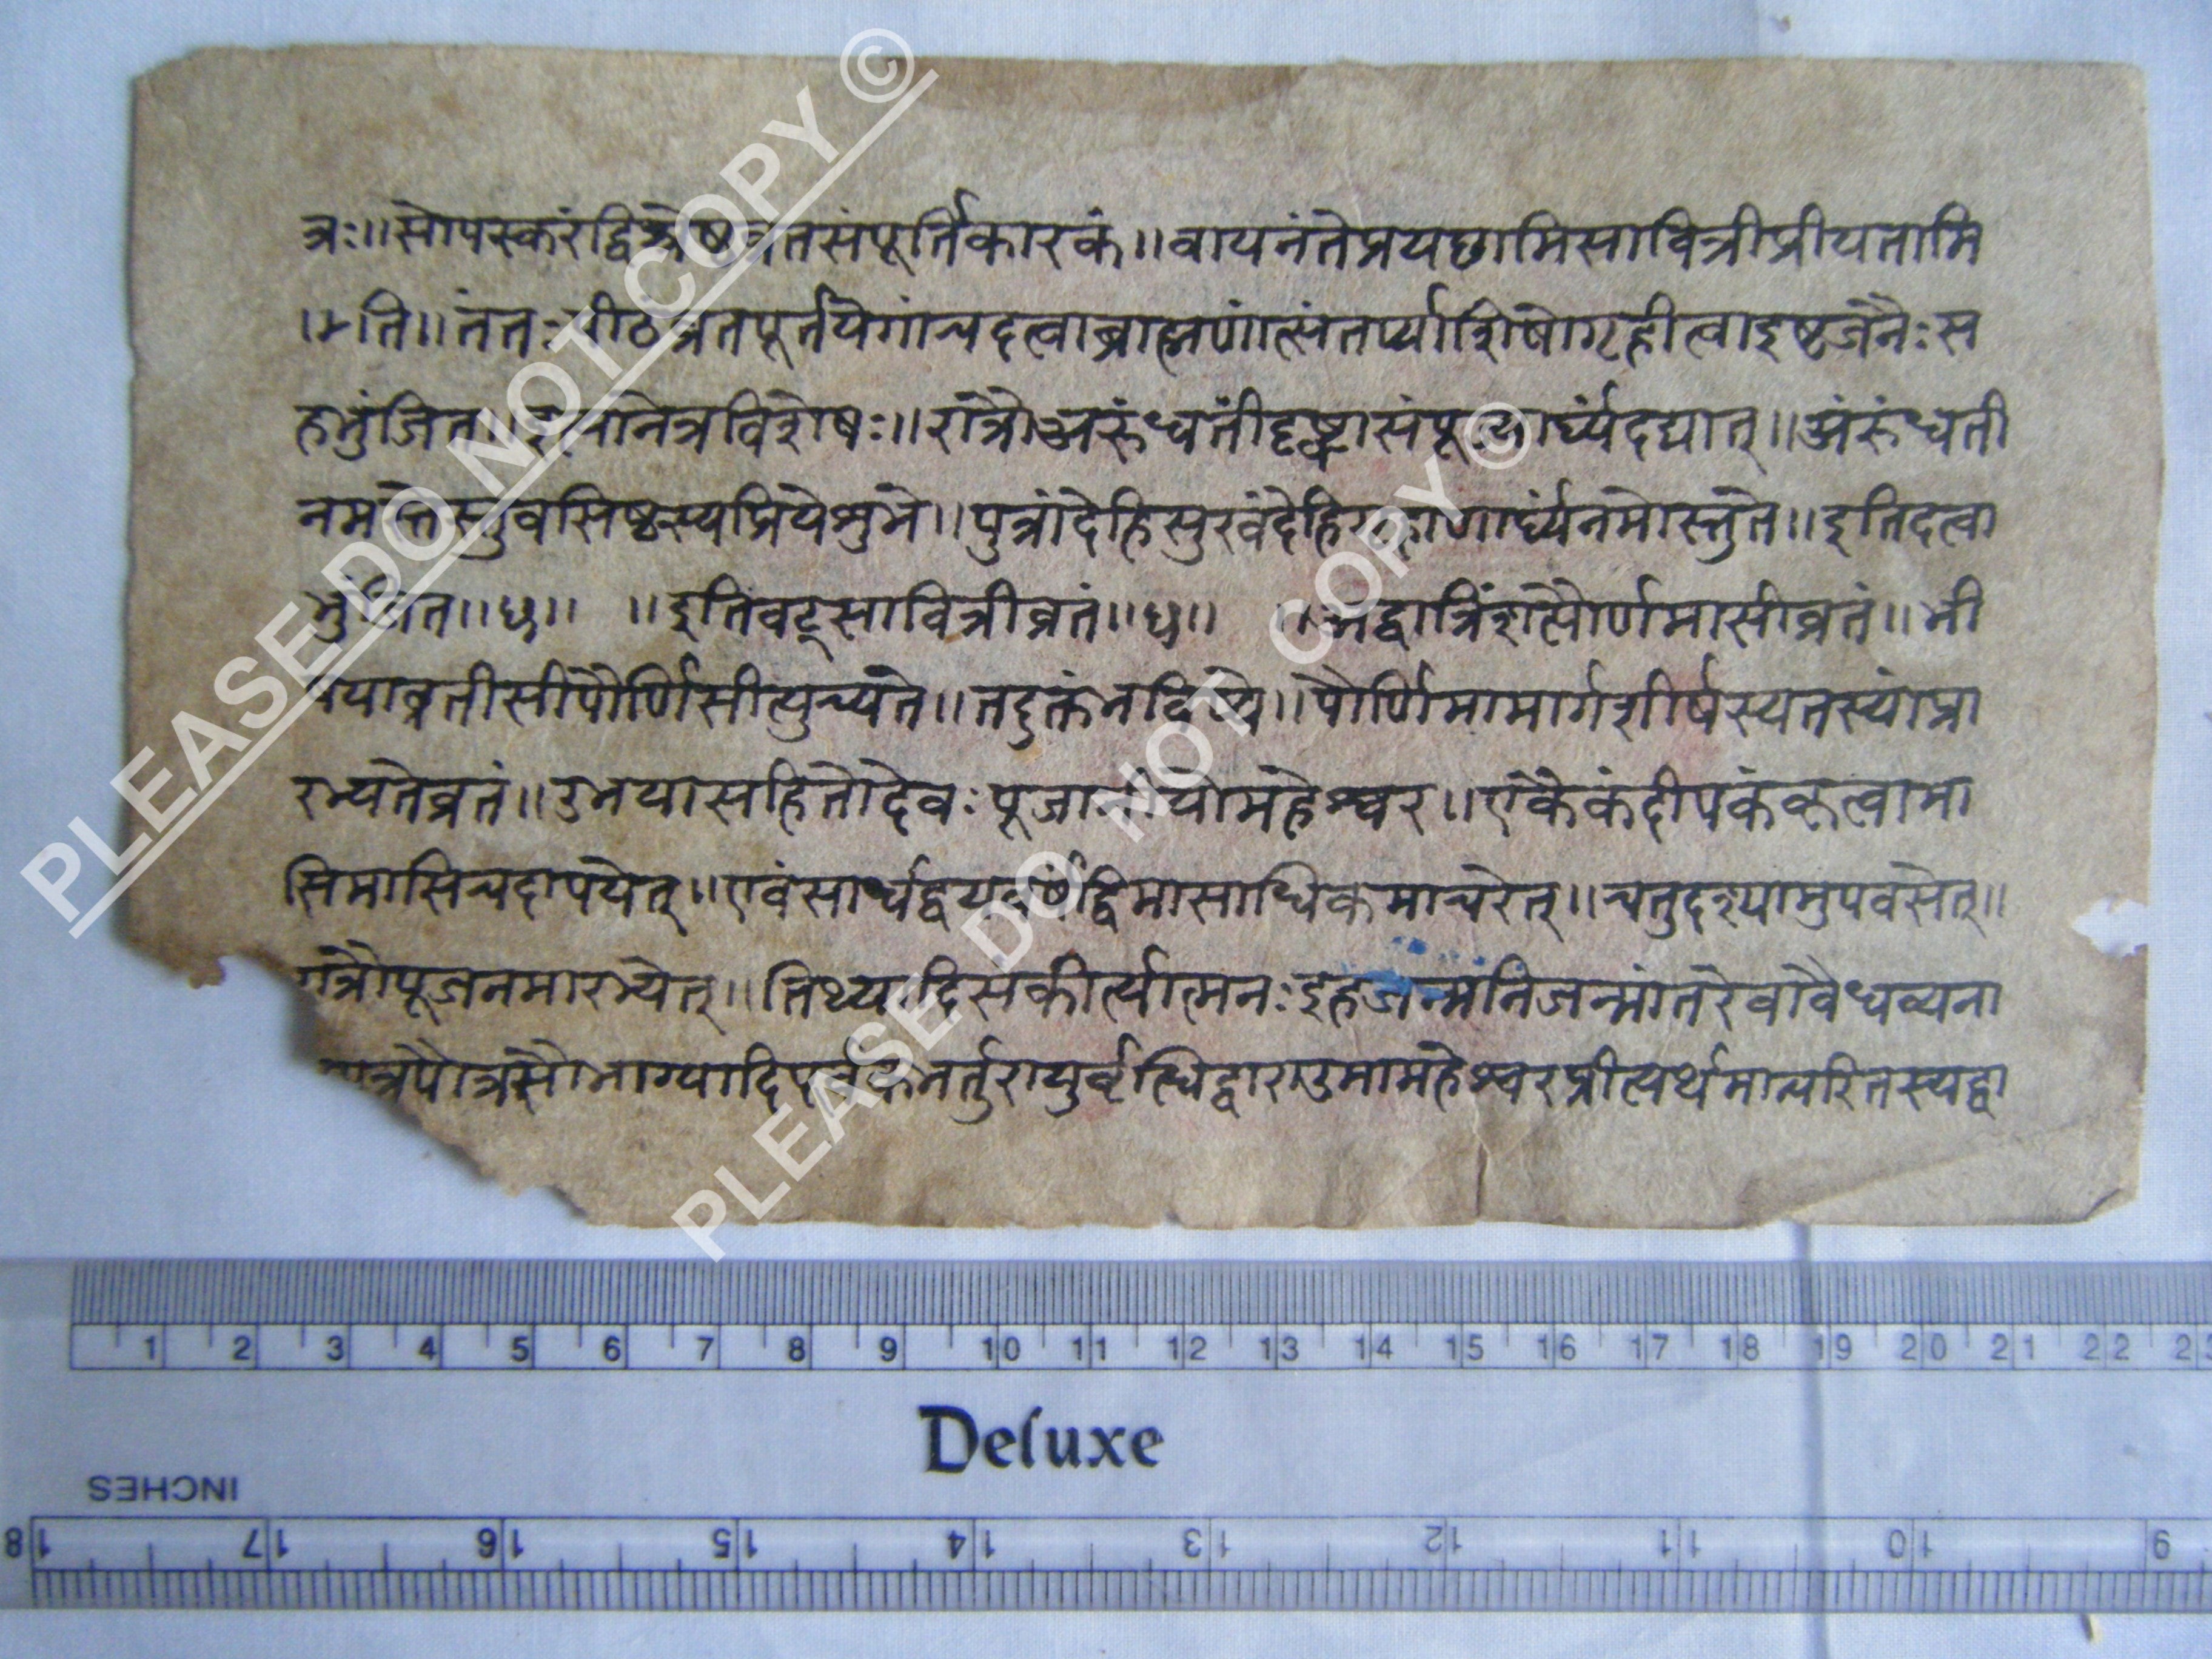 त्रः॥सोपस्करंद्विजश्रेष्ठव्रतसंपूर्तिकारकं॥वायनंतेप्रयछामिसावित्रीप्रीयतामि
ति॥तंतःपीठव्रतपूर्तयेगांचदत्वाब्राह्मणांत्संतर्प्याशिषोगृहीत्वाइष्टजनैःस
हभुंजित॥ विशेषः॥रात्रौअरुंधतींदृष्ट्वासंपूज्यार्घ्यंदद्यात्॥अरुंधती
नमस्तेस्तुवसिष्ठस्यप्रियेशुभे॥पुत्रांदेहिसुखंदेहिगृहाणार्घ्यंनमोस्तुते॥इतिदत्वा
भुंजित॥छ॥ ॥इतिवटसावित्रीव्रतं॥छ॥ ॥अद्वात्रिंशत्पौर्णमासीव्रतं॥भी
षयाव्रतीसीपौर्णिसीत्युच्यते॥तदुक्तं ॥पौर्णिमामार्गशीर्षस्यतस्यांप्रा
रभ्यतेव्रतं॥उमयासहितोदेवःपूजानीयोमहेश्वर॥एकैकंदीपकंकृत्वामा
सिमासिचदापयेत्॥एवंसार्धद्वयवर्षंद्विमासाधिकमाचरेत्॥चतुदश्यामुपवसेत्॥
रात्रौपूजनमारभ्येत्॥तिथ्यादिसकीर्त्यात्मनःइहजन्मनिजन्मांतरेवावैधव्यना
पुत्रपौत्रसौभाग्यादिपूर्वकभर्तुरायुर्वृत्धिद्वाराउमामहेश्वरप्रीत्यर्थमाचरितस्यद्वा
PLEASE DO NOT COPY ©
PLEASE DO NOT COPY ©
1 2 3 4 5 6 7 8 9 10 11 12 13 14 15 16 17 18 19 20 21 22
Deluxe
INCHES
18 17 16 15 14 13 12 11 10 9